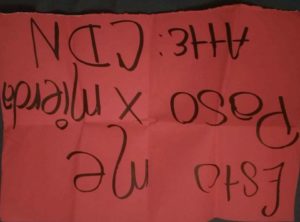 Esto me
Paso x mierda
Atte: CDN